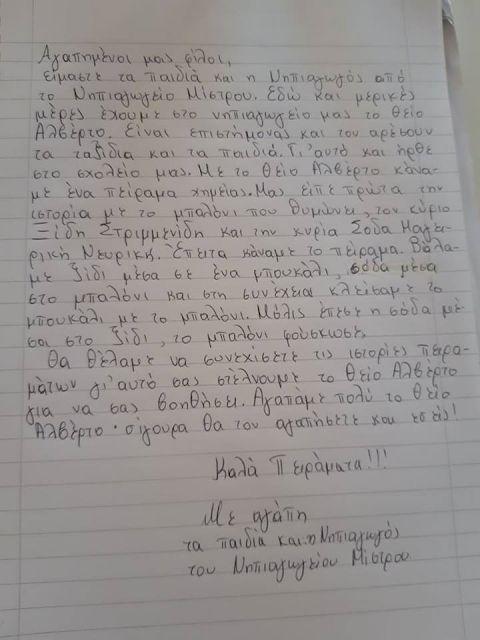 Αγαπημένοι μας φίλοι,
είμαστε τα παιδιά και η Νηπιαγωγός από
το Νηπιαγωγείο Μίστρου. Εδώ και μερικές
μέρες έχουμε στο νηπιαγωγείο μας το θείο
Αλβέρτο. Είναι επιστήμονας και του αρέσουν
τα ταξίδια και τα παιδιά. Γι' αυτό και ήρθε
στο σχολείο μας. Με το θείο Αλβέρτο κάνα-
με ένα πείραμα χημείας. Μας είπε πρώτα την
ιστορία με το μπαλόνι που θυμώνει, τον κύριο
Ξίδη Στριμμενίδη και την κυρία Σόδα Μαγει-
ρική Νευρική. Έπειτα κάναμε το πείραμα. Βάλα-
με ξίδι μέσα σε ένα μπουκάλι, σόδα μέσα
στο μπαλόνι και στη συνέχεια κλείσαμε το
μπουκάλι με το μπαλόνι. Μόλις έπεσε η σόδα μέ-
σα στο ξίδι, το μπαλόνι φούσκωσε.
Θα θέλαμε να συνεχίσετε τις ιστορίες πειρα-
μάτων γι' αυτό σας στέλνουμε το θείο Αλβέρτο
για να σας βοηθήσει. Αγαπάμε πολύ το θείο
Αλβέρτο · σίγουρα θα τον αγαπήσετε και εσείς!
Καλά Πειράματα!!!
Με αγάπη
τα παιδιά και η Νηπιαγωγός
του Νηπιαγωγείου Μίστρου